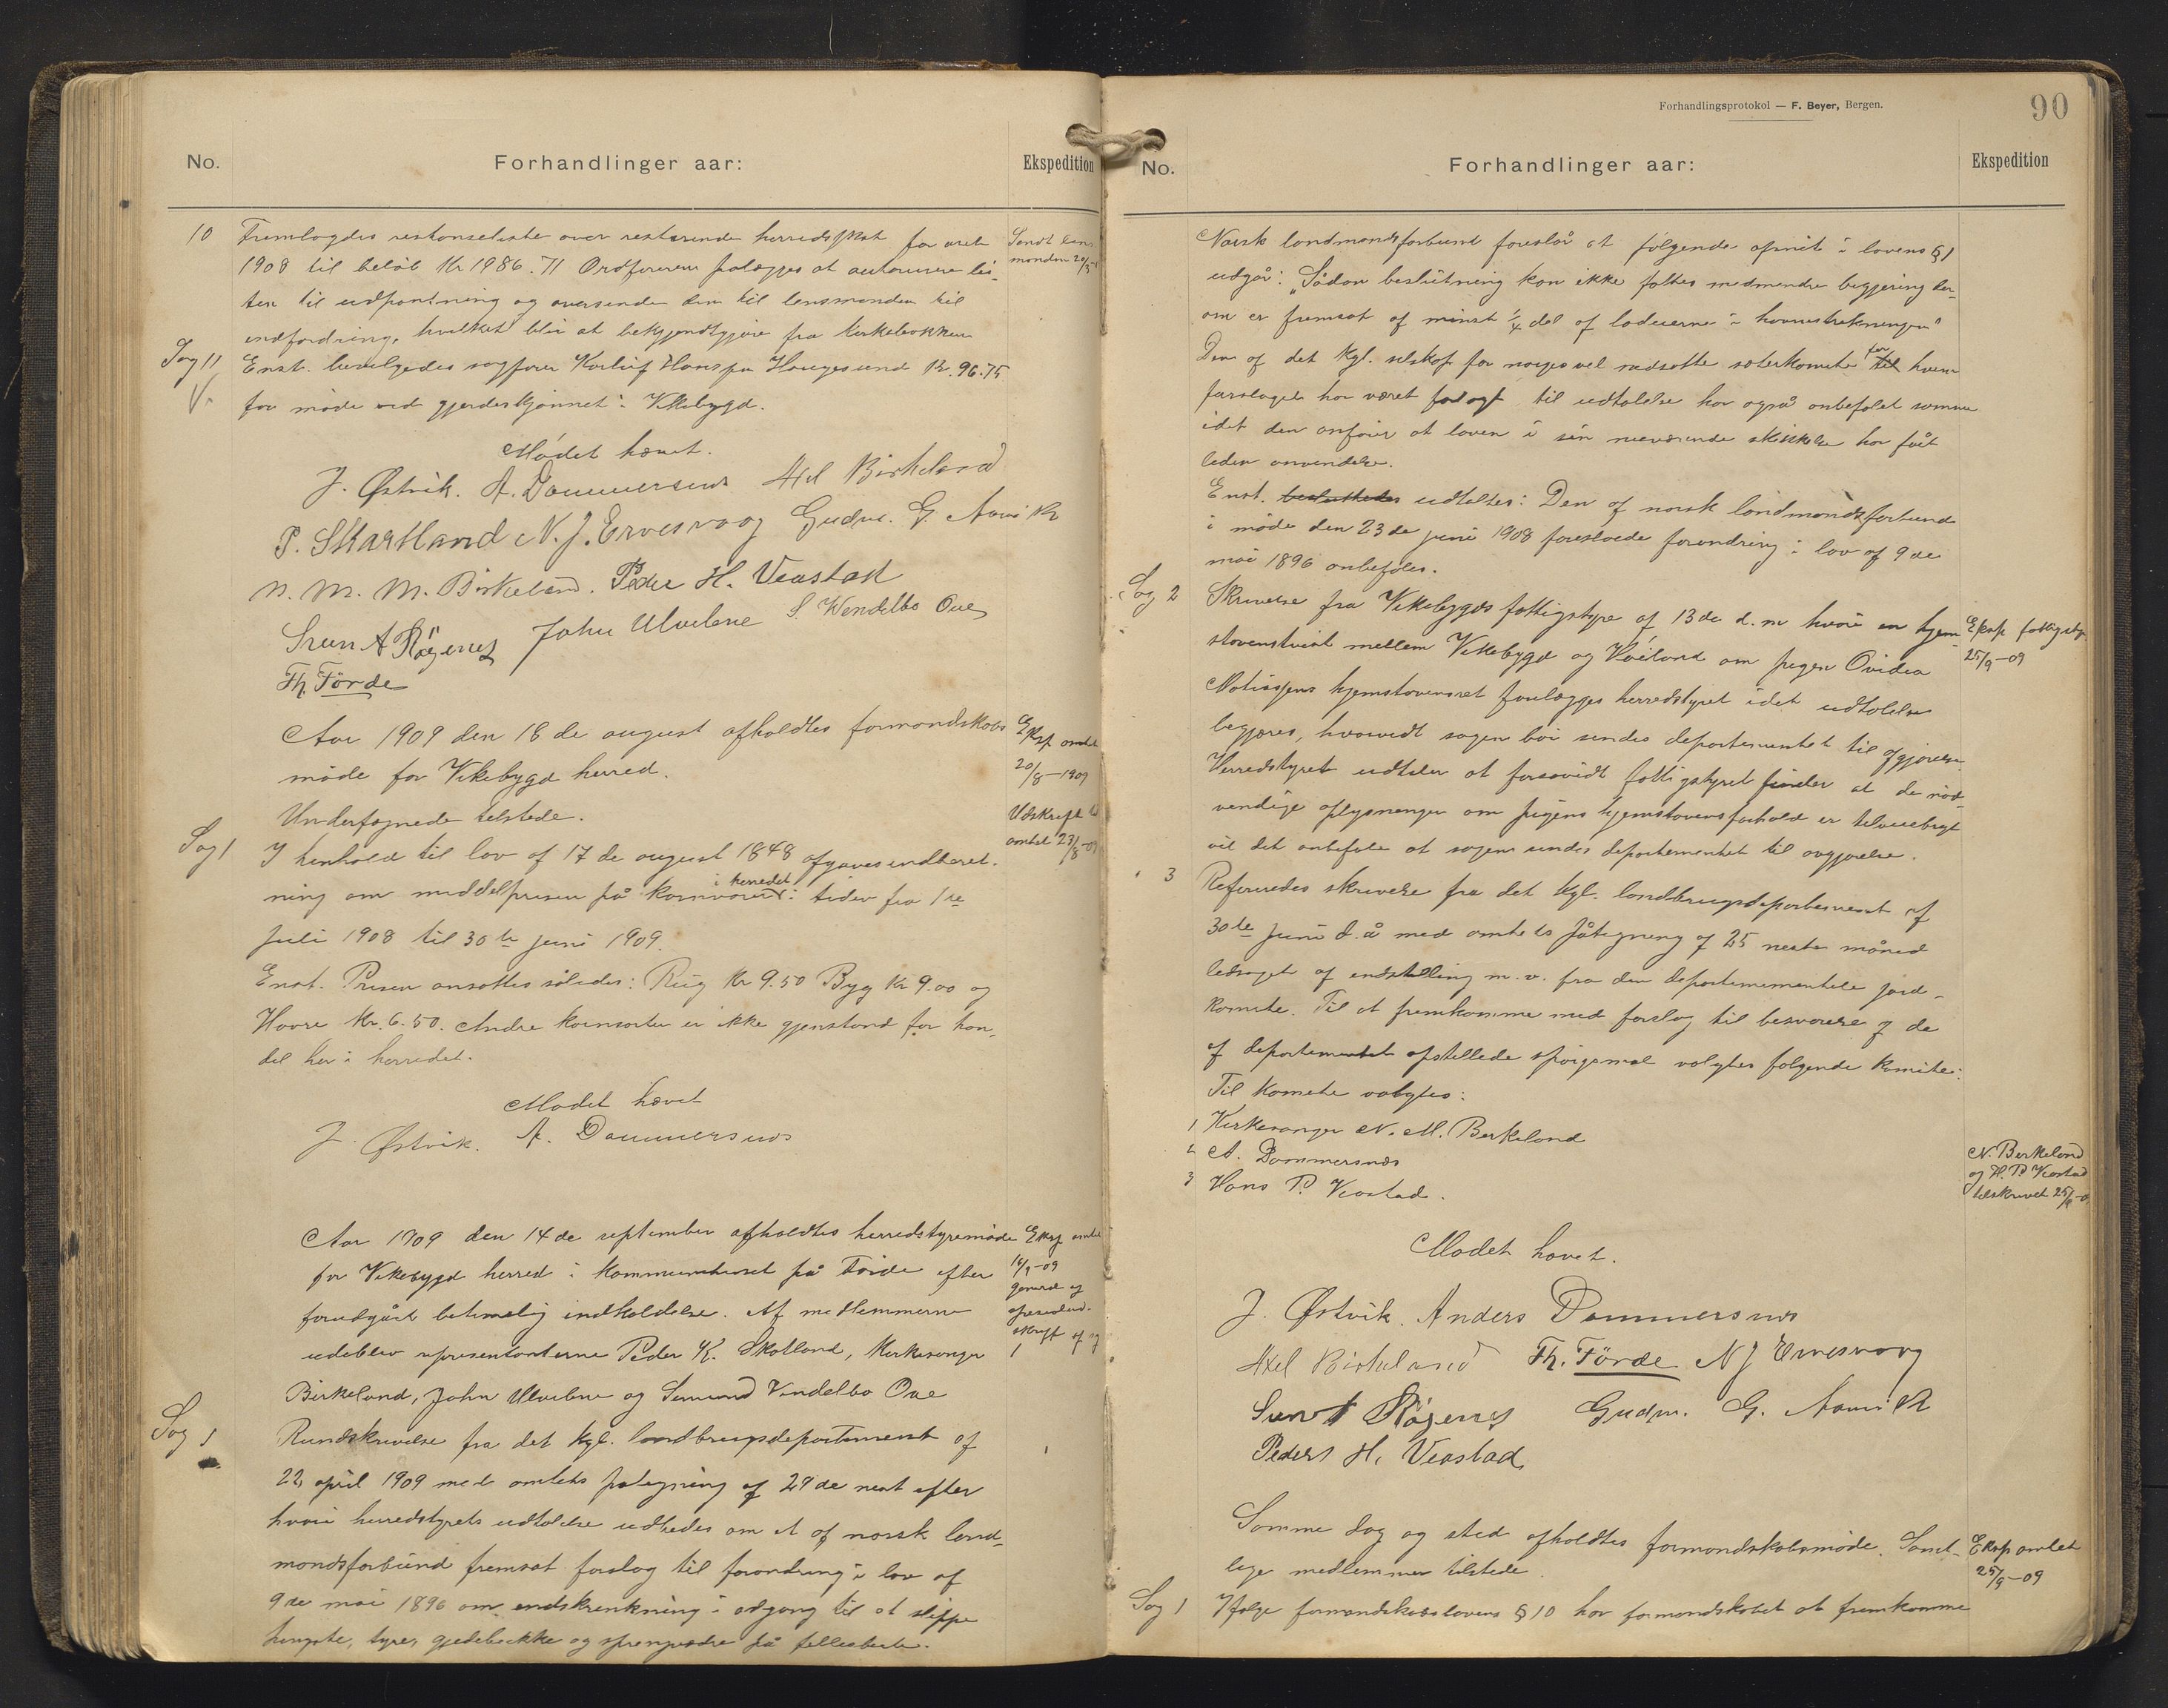 No.
Forhandlinger aar:
Ekspedition
10
Fremlagdes restanseliste over resterende herredsskat for året
Sendt lens-
manden 20/5
1908 til beløb Kr 1986.71 Ordføreren pålægges at autorisere lis-
ten til udpantning og oversende den til lensmanden til
indfordring, hvilket blir at bekjendtgjøre fra kirkebakken
Sag 11
V.
Enst. bevilgedes sagfører Hans fra Haugesund Kr. 96.75
for møde ved gjerdeskjønnet i Vikebygd.
Mødet hævet.
J. Østvik. A. Dommersnes Axel Birkeland
P. Skartland N. J. Ervesvaag Gudm. G. Aamvik
N. M. M. Birkeland. Peder H. Veastad
Sven A Røgenes John Ulvelene S. Wendelbo Oue
Th. Förde
Aar 1909 den 18 de august afholdtes formandskabs
Eksp amtet
20/8-1909
møde for Vikebygd herred.
Undertegnede tilstede.
Udskrift til
amtet 23/8-09
Sag 1
I henhold til lov af 17 de august 1848 afgaves indberet-
ning om middelprisen på kornvarer i herredet i tiden fra 1ste
Juli 1908 til 30te juni 1909.
Enst. Prisen ansattes således: Rug Kr 9.50 Byg Kr 9.00 og
Havre Kr. 6.50. Andre kornsorter er ikke gjenstand for han-
del her i herredet.
Mødet hævet
J. Østvik. A. Dommersnes
Aar 1909 den 14 de september afholdtes herredstyremøde
Eksp amtet
16/9-09
for Vikebygd herred i Kommunehuset på Førde efter
forudgået betimelig indkaldelse. Af medlemmerne
udeblev repræsentanterne Peder K. Skatland, Kirkesanger
Birkeland, John Ulvelene og Simund Vendelbo Oue
Sag 1
Rundskrivelse fra det kgl. landbrugsdepartement af
22 april 1909 med amtets påtegning af 29 de next efter
hvori herredstyrets udtalelse udbedes om et af norsk land-
mandsforbund fremsat forslag til forandring i lov af
9 de mai 1896 om indskrænkning i adgang til at slippe
hingste, tyrer, gjedebukke og på fellesbeite.
Forhandlingsprotokol — F. Beyer, Bergen.
90
No.
Forhandlinger aar:
Ekspedition
Norsk landmandsforbund foreslår at følgende afsnit i lovens §1
udgår: "Sådan beslutning kan ikke fattes medmindre begjæring der-
om er fremsat af minst 1/4 del af lodeierne i havnestrekningen"
Den af det kgl. selskap for norges vel nedsatte sæterkomite for til hvem
forslaget har været forlagt til udtalelse har også anbefalet samme
idet den anfører at loven i sin nuværende skikkelse har fået
liden anvendelse.
Enst. besluttedes udtaltes: Den af norsk landmandsforbund
i møde den 23 de juni 1908 foreslaaede forandring i lov af 9 de
mai 1896 anbefales.
Sag 2
Skrivelse fra Vikebygds fattigstyre af 13 de d. m hvori en hjem-
Eksp fattigsty.
25/9-09
stavnstvist mellem Vikebygd og om pigen Ovidia
Matiassens hjemstavnsret forelægges herredstyret idet udtalelse
begjæres, hvorvidt sagen bør sendes departementet til afgjørelse.
Herredstyret udtaler at forsåvidt fattigstyret finder at de nød-
vendige oplysninger om pigens hjemstavnsforhold er tilveiebragt
vil det anbefale at sagen sendes departementet til avgjørelse.
3
Refereredes skrivelse fra det kgl. landbrugsdepartement af
30te juni d. å med amtets påtegning af 25 neste måned
ledsaget af indstilling m. v. fra den departementele jord-
komite. Til at fremkomme med forslag til besvarelse af de
af departementet opstillede spørgsmål valgtes følgende komite:
Til komite valgtes:
1 Kirkesanger N. M. Birkeland
2 A. Dommersnes
3 Hans P. Veastad.
N. Birkeland
og H. P. Veastad
tilskrevet 25/9-0
Mødet hævet.
J. Østvik. Anders Dommersnes
Axel Birkeland Th. Förde N J Ervesvaag
Sven A Røgenes Gudm. G. Aamvik
Peder H. Veastad,
Samme dag og sted afholdtes formandskabsmøde. Samt-
Eksp amtet
25/9-09
lige medlemmer tilstede.
Sag 1
Ifølge formandskabslovens § 10 har formandskabet at fremkomme